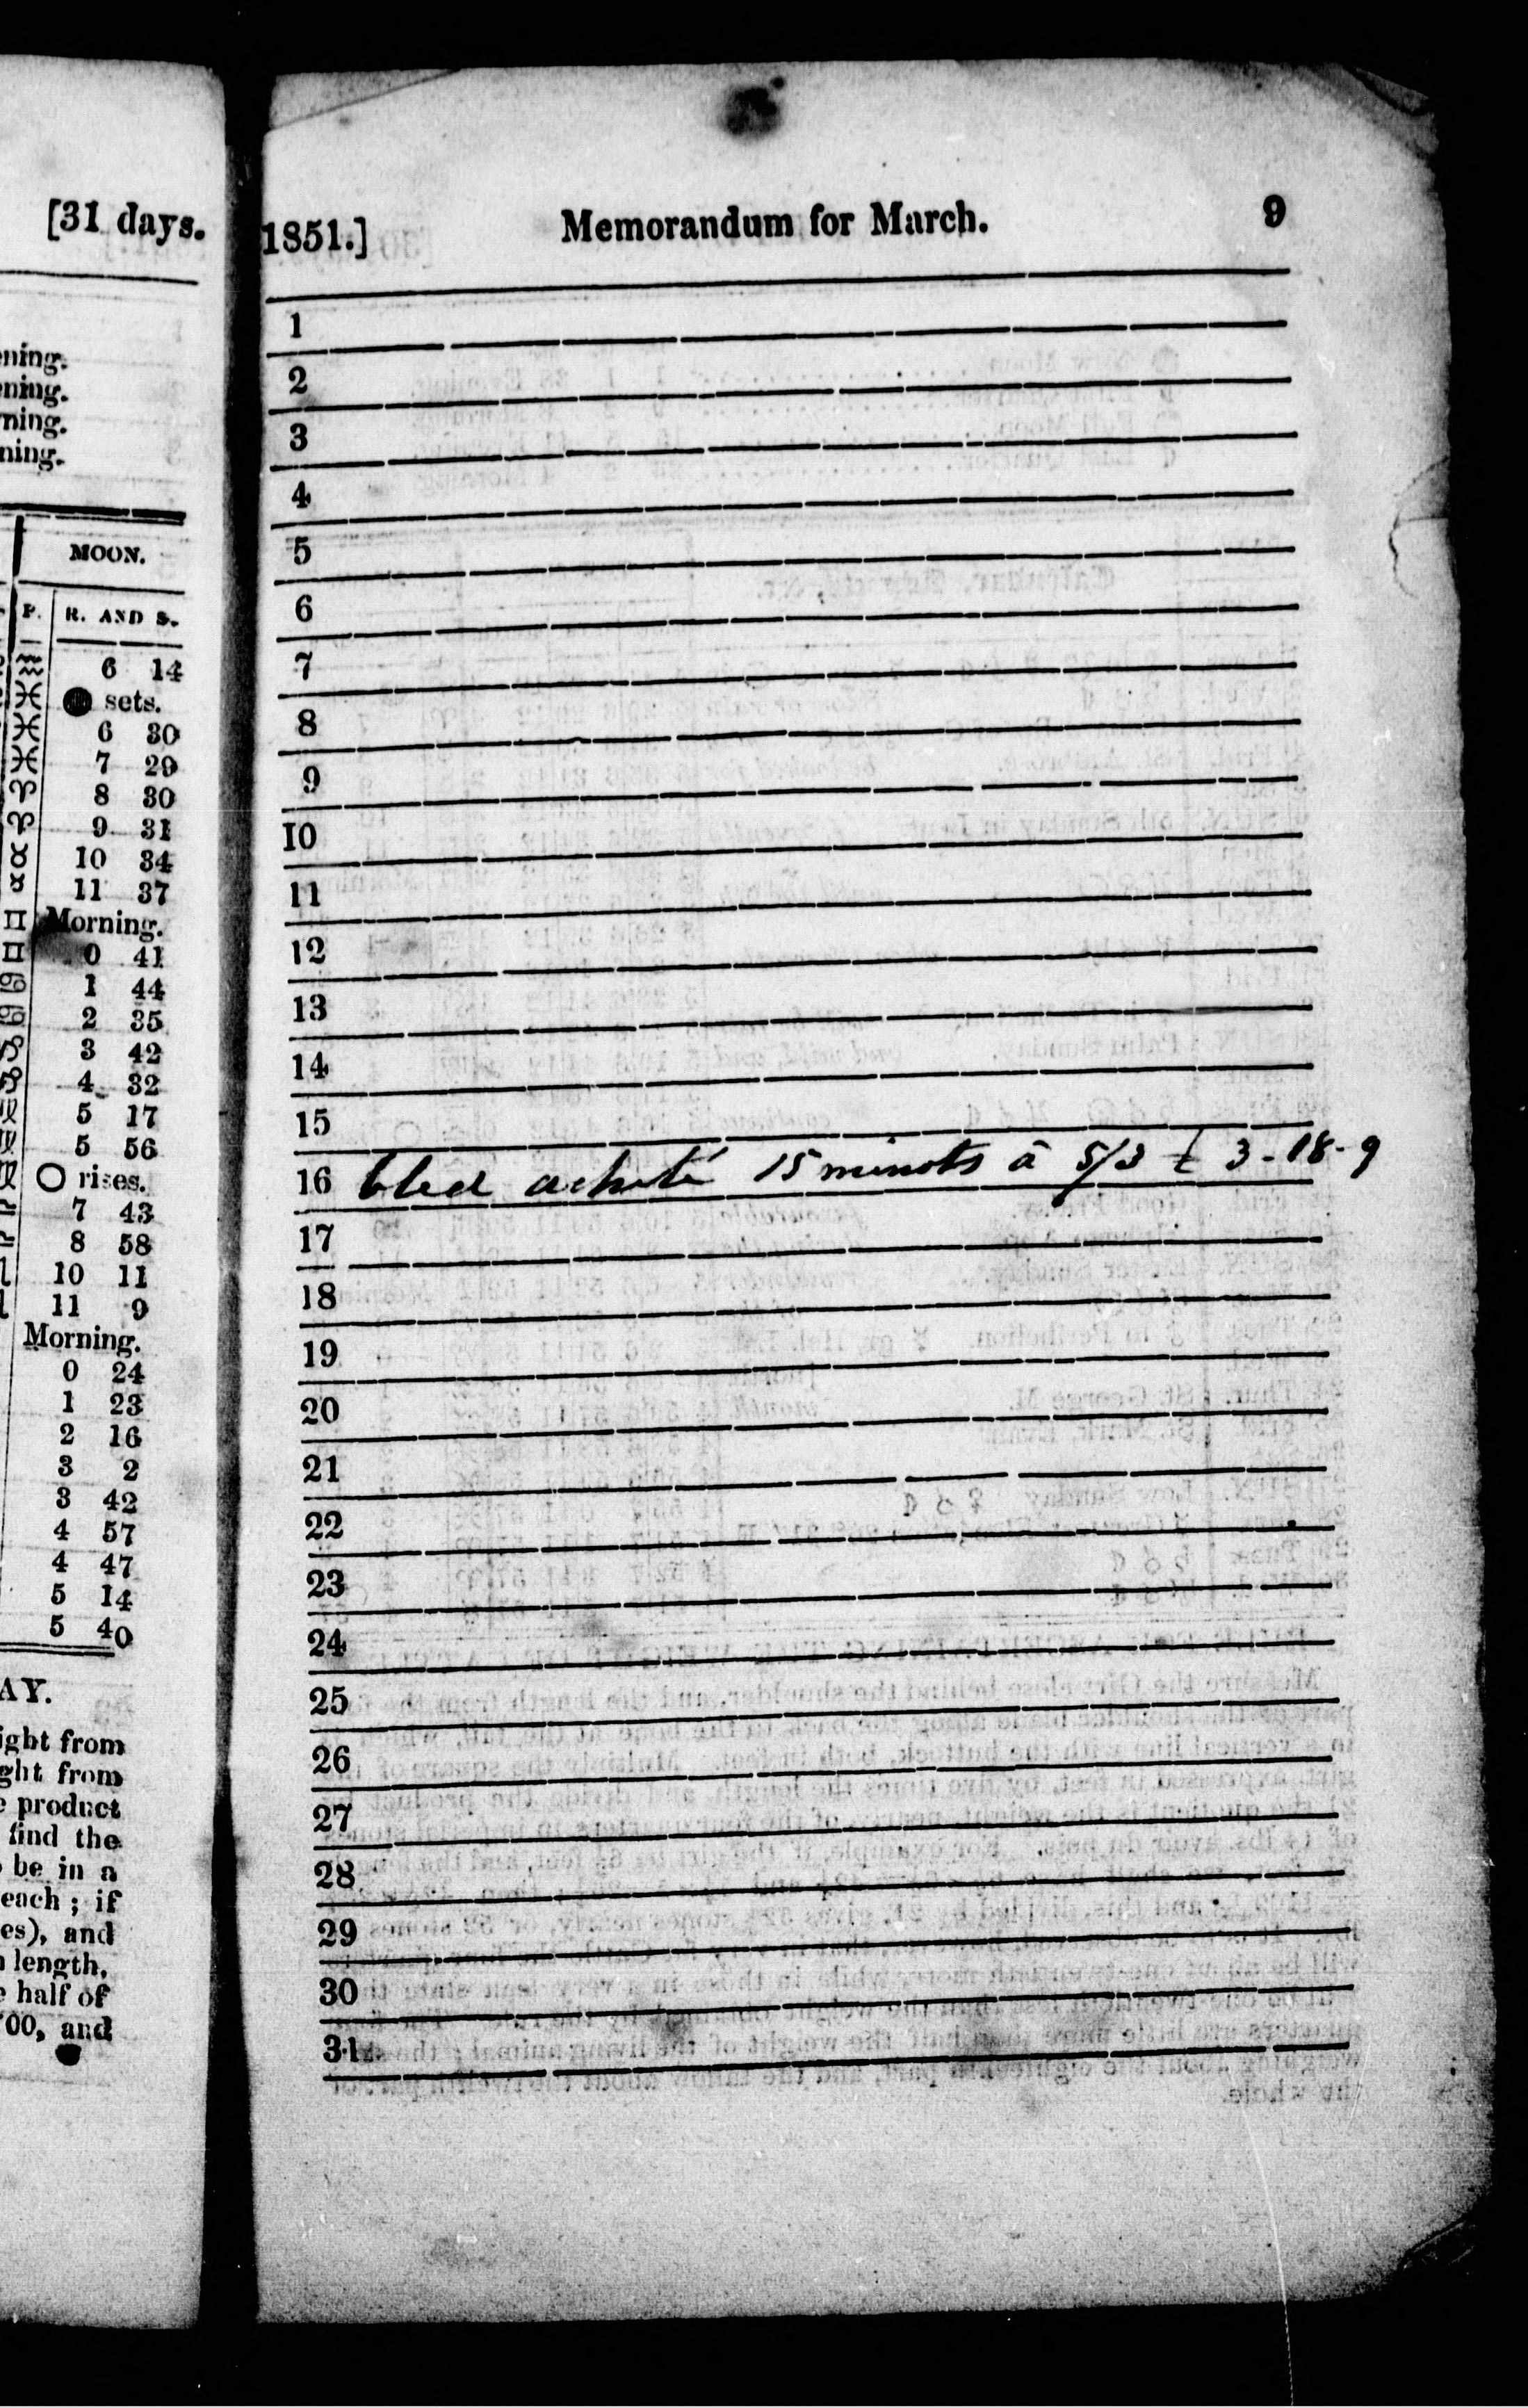 [31 days.
ning.
ning.
ning.
ning.
MOON.
P. R. AND S.
♒ 6 14
♓ ● sets.
♓ 6 30
♓ 7 29
♈ 8 30
♈ 9 31
♉ 10 34
♉ 11 37
♊ Morning.
♊ 0 41
♋ 1 44
♋ 2 35
3 42
4 32
5 17
5 56
○ rises.
7 43
8 58
10 11
11 9
Morning.
0 24
1 23
2 16
3 2
3 42
4 57
4 47
5 14
5 40
AY.
ight from
ght from
e product
find the
be in a
each ; if
es), and
length,
half of
00, and
1851.] Memorandum for March. 9
1
2
3
4
5
6
7
8
9
10
11
12
13
14
15
16 bled acheté 15 minots à 5/3 £ 3-18-9
17
18
19
20
21
22
23
24
25
26
27
28
29
30
31